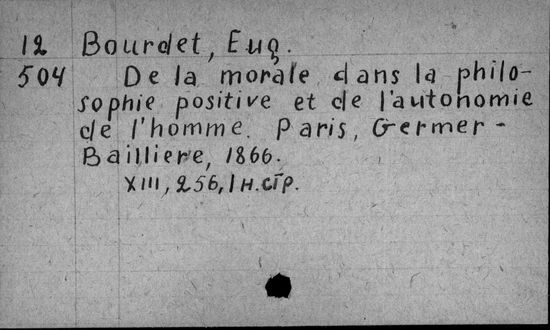 12 Bourdet, Eug.
504 De la morale dans la philo-
sophie positive et de l'autonomie
de l'homme. Paris, Germer-
Bailliere, 1866.
XIII, 256, 1 н.стр.